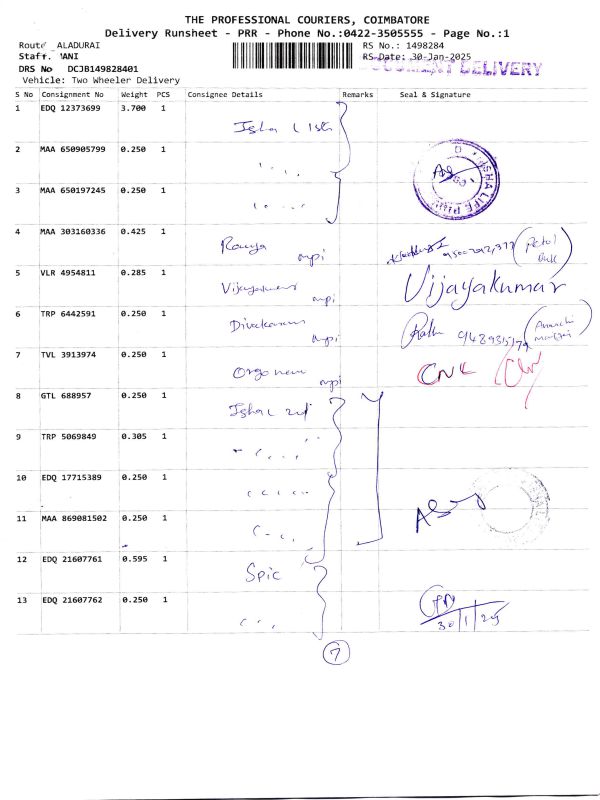 THE PROFESSIONAL COURIERS, COIMBATORE
Delivery Runsheet - PRR - Phone No.:0422-3505555 - Page No.:1
Route ALADURAI
RS No.: 1498284
Staff. MANI
RS Date: 30-Jan-2025
DELIVERY
DRS No DCJB149828401
Vehicle: Two Wheeler Delivery
S No Consignment No Weight PCS Consignee Details Remarks Seal & Signature
1 EDQ 12373699 3.700 1 Isha L 1st
2 MAA 650905799 0.250 1
3 MAA 650197245 0.250 1
ISHA LIFE
4 MAA 303160336 0.425 1 Ramya mpi
5 VLR 4954811 0.285 1 Vijayakumar mpi Vijayakumar
6 TRP 6442591 0.250 1 Divakaran mpi
7 TVL 3913974 0.250 1 mpi
8 GTL 688957 0.250 1 Isha L 2nd
9 TRP 5069849 0.305 1
10 EDQ 17715389 0.250 1
11 MAA 869081502 0.250 1
12 EDQ 21607761 0.595 1 Spic
13 EDQ 21607762 0.250 1
30/1/25
7